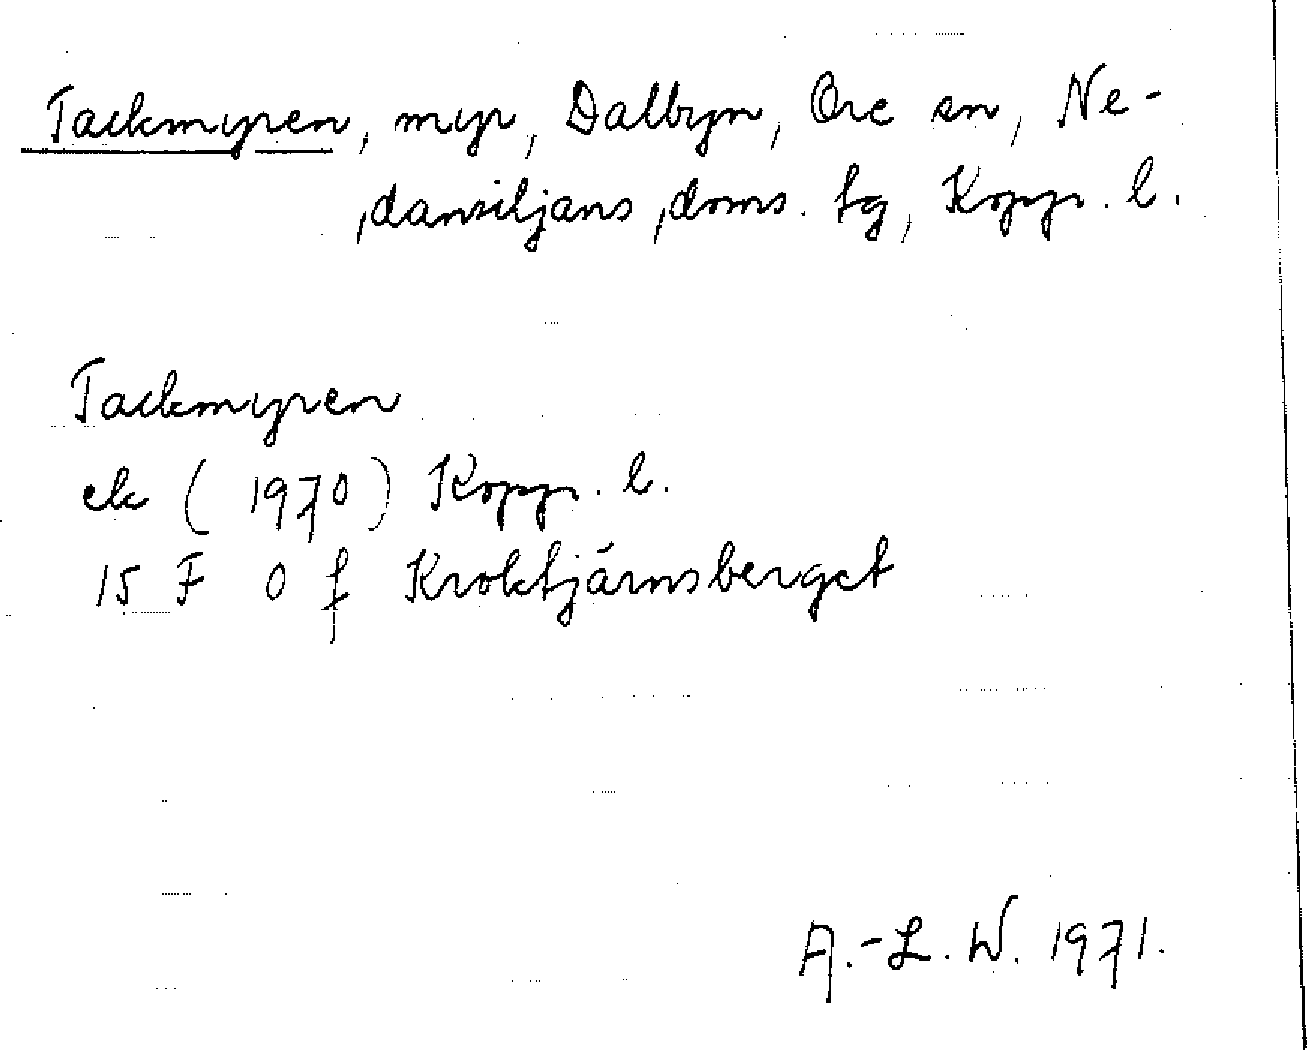 Tackmyren, myr, Dalbyn, Ore sn, Ne-
dansiljans doms. tg, Kopp. l.
Tackmyren
ek (1970) Kopp. l.
15 F O f Kroktjärnsberget
A.-L. W. 1971.